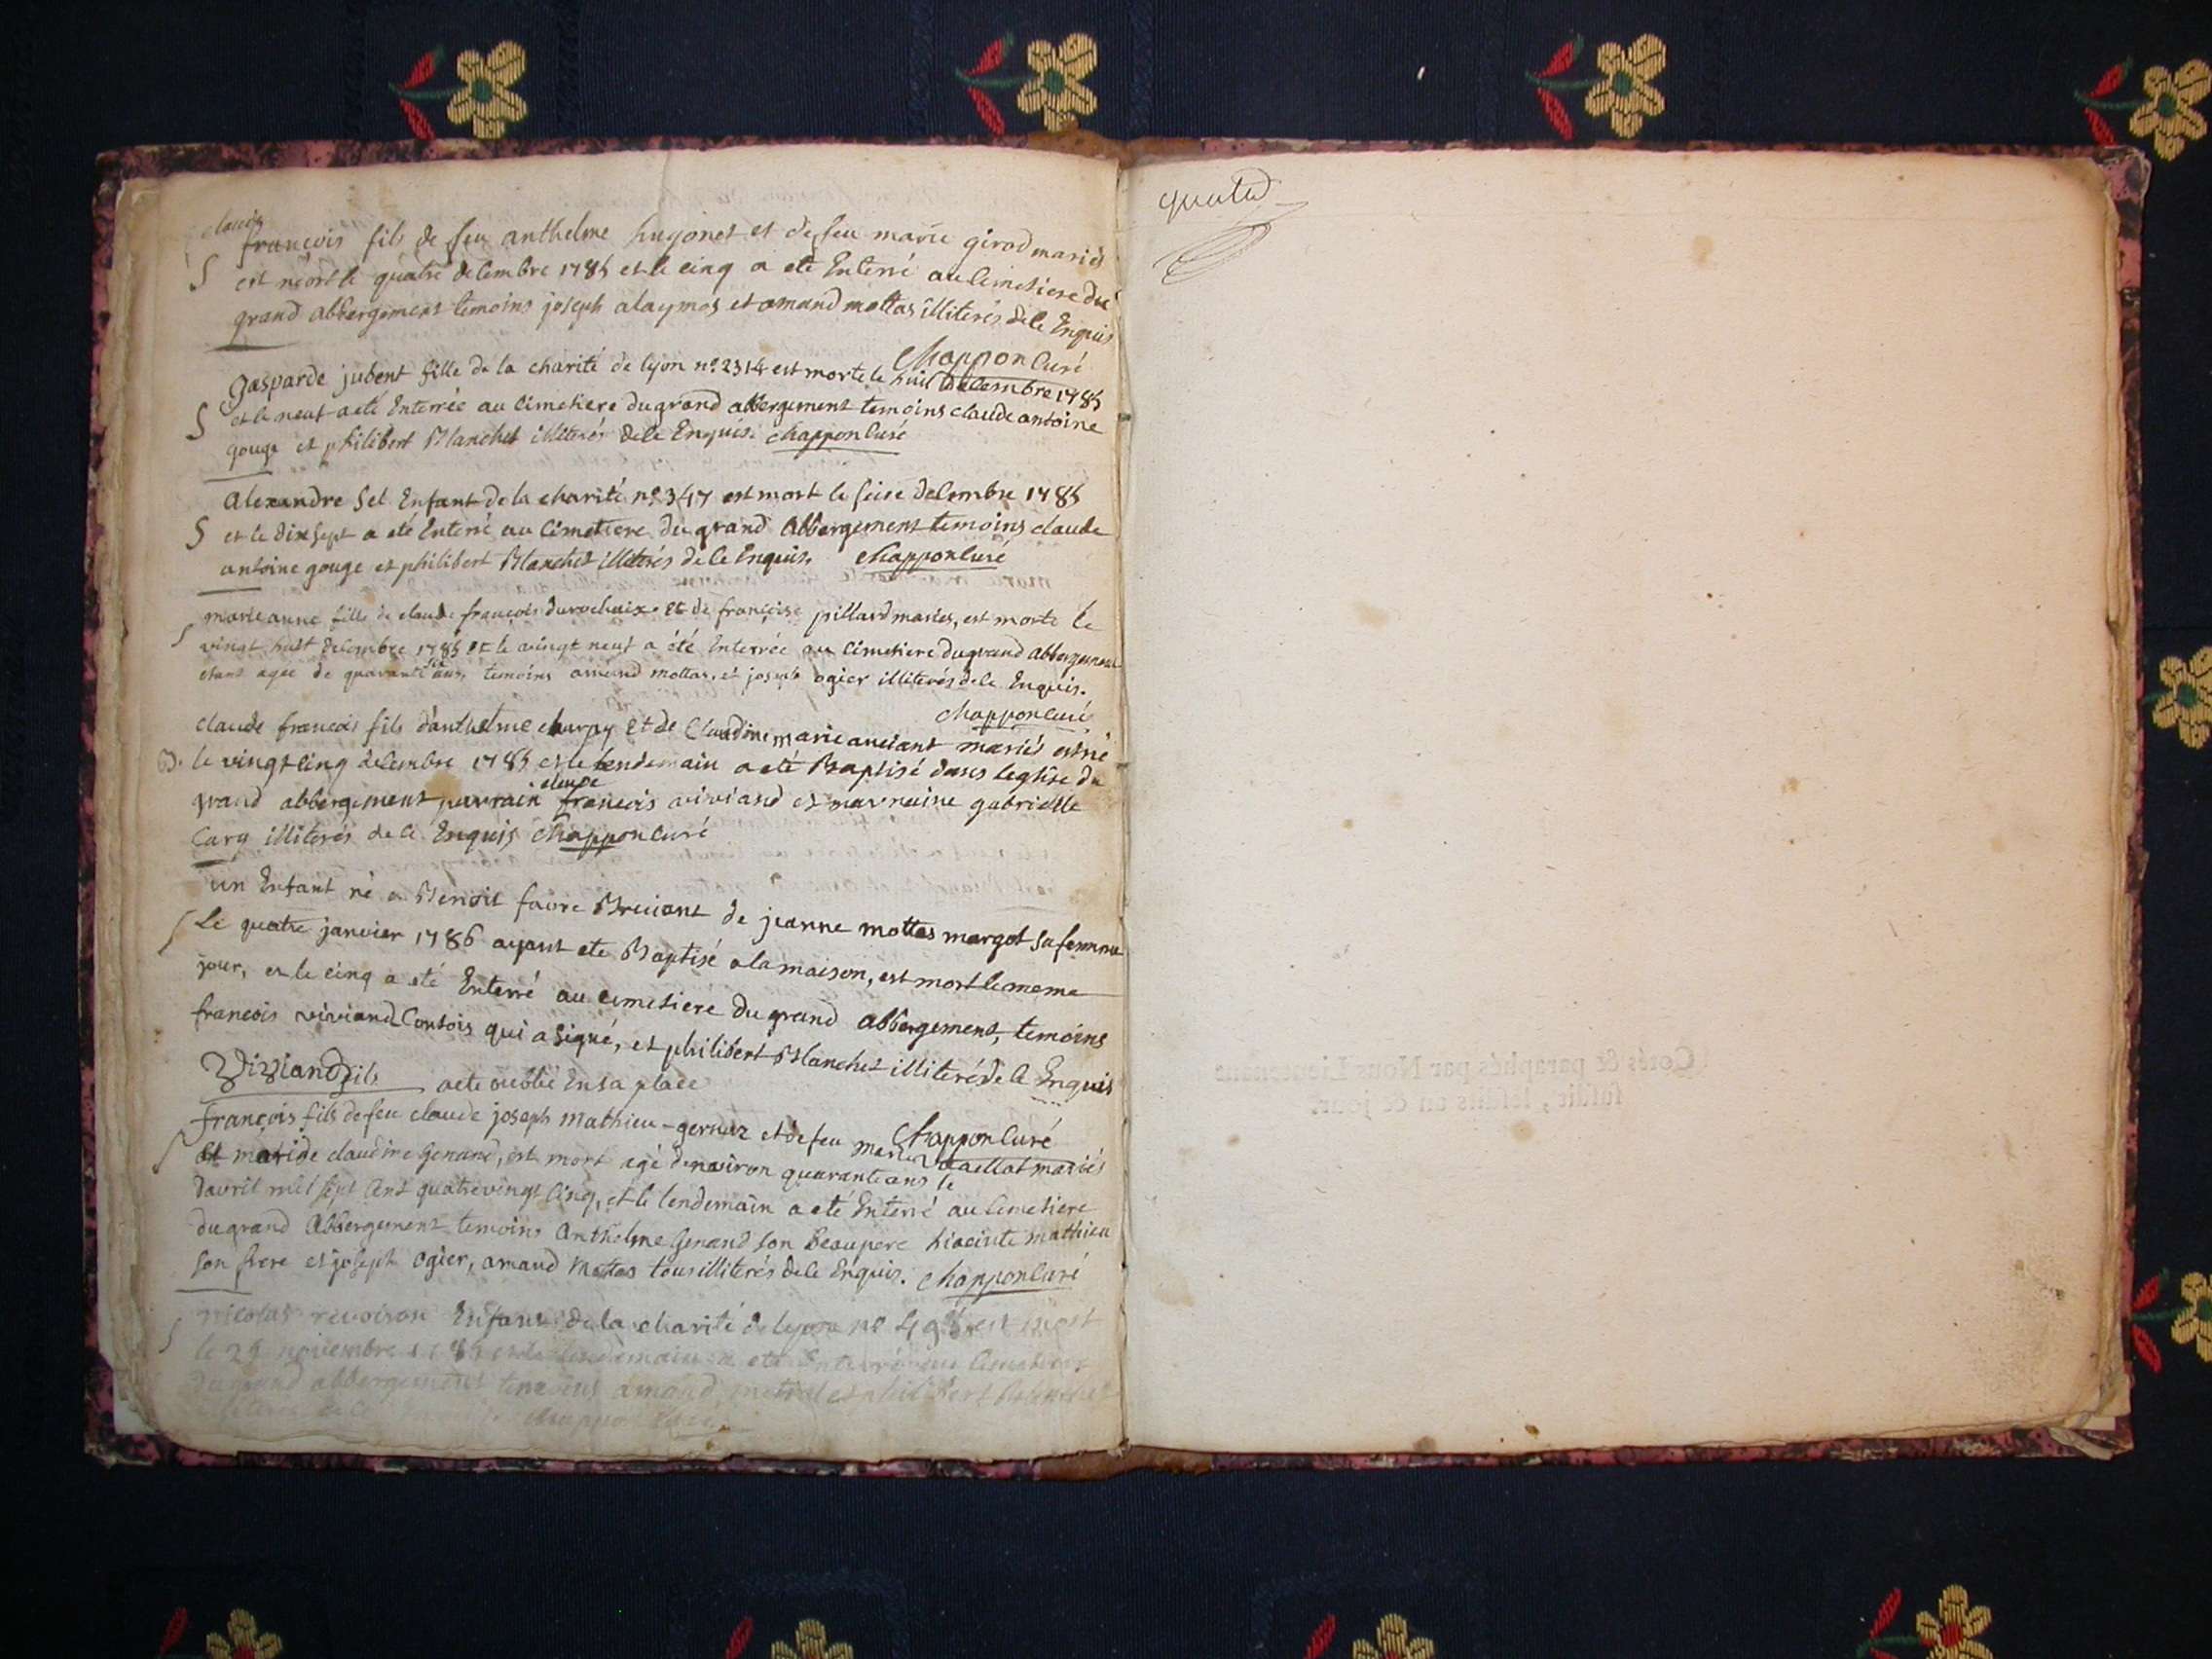 claude
françois fils de feu anthelme hugonet et de feu marie girod mariés
S est mort le quatre decembre 1785 et le cinq a eté Enterré au cimetiere du
grand abbergement temoins joseph alaymos et amand mottas illiterés de ce Enquis
Chappon Curé
gasparde jubent fille de la charité de lyon n° 2314 est morte le huit decembre 1785
S et le neuf a eté Enterrée au cimetiere du grand abbergement temoins claude antoine
gouge et philibert Blanchet illiterés de ce Enquis. Chappon Curé
alexandre Set Enfant de la charité n° 347 est mort le seise decembre 1785
S et le dix sept a eté Enterré au cimetiere du grand abbergement temoins claude
antoine gouge et philibert Blanchet illiterés de ce Enquis. Chappon Curé
marie anne fille de claude françois durochaix et de françoise pillard mariés, est morte le
S vingt huit decembre 1785 et le vingt neuf a été Enterrée au cimetiere du grand abbergement
etant agée de quarante six ans, temoins amand mottas, et joseph ogier illiterés de ce Enquis.
Chappon Curé
claude francois fils d'anthelme charpy et de Claudine marie anciant mariés est né
B. le vingt cinq decembre 1785 et le lendemain a eté Baptisé dans leglise du
grand abbergement, parrain claude francois viviand et marraine gabrielle
Cary illiterés de ce Enquis Chappon Curé
un Enfant né a Benoit favre Bruiant de jeanne mottas margot sa femme
S Le quatre janvier 1786 ayant ete Baptisé a la maison, est mort le meme
jour, et le cinq a eté Enterré au cimetiere du grand abbergement, temoins
francois viviand Contois qui a signé, et philibert Blanchet illiteré de ce Enquis
Viviand fils acte oublié En sa place
Chappon Curé
françois fils de feu claude joseph mathieu-gernaz et de feu marie taillat mariés
S et mari de claudine genand, est mort agé denviron quarante ans le
davril mil sept cent quatrevingt cinq, et le lendemain a eté Enterré au cimetiere
du grand abbergement temoins anthelme genand son beaupere hiacinte mathieu
son frere et joseph ogier, amand mottas tous illiterés de ce Enquis. Chappon Curé
S nicolas revoiron Enfant de la charité de lyon n° 498 est mort
le 29 novembre 1785 et le lendemain a eté Enterré au cimetiere
du grand abbergement temoins amand et philibert Blanchet
Chappon Curé
Cotés & paraphés par Nous Lieutenant
susdit, lesdits an & jour.